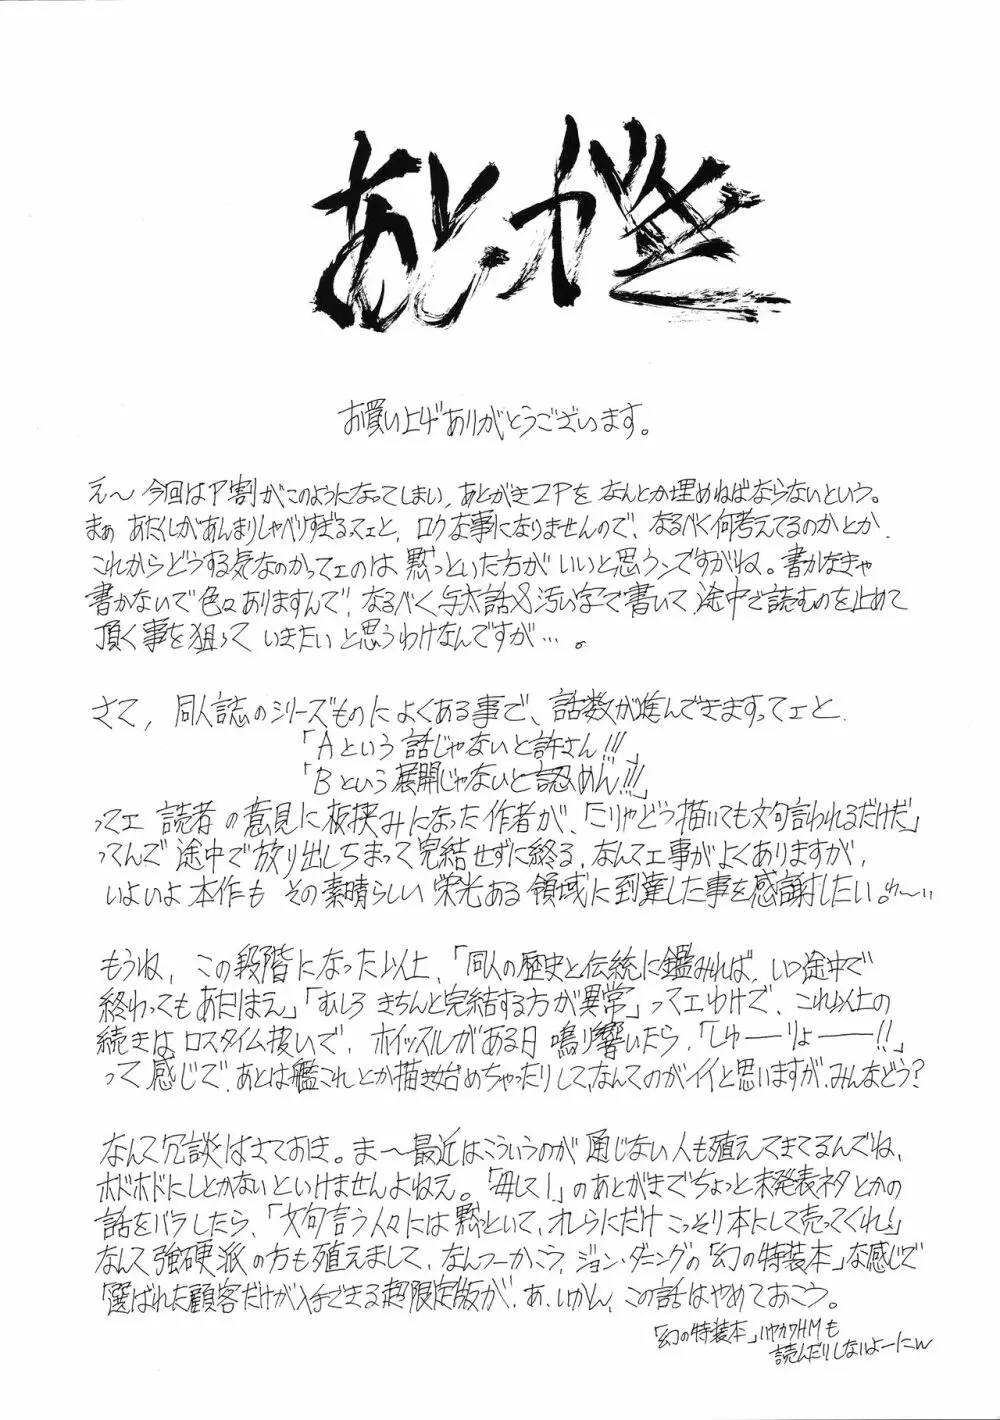 あとがき
お買い上げありがとうございます。
え〜今回はP割がこのようになってしまい、あとがき2Pをなんとか埋めねばならないという。
まぁあたくしがあんまりしゃべりすぎるってェと、ロクな事になりませんので、なるべく何考えてるのかとか、
これからどうする気なのかってェのは黙っといた方がいいと思うンですがね。書かなきゃ
書かないで色々ありますんで、なるべく与太話&汚い字で書いて途中で読むのを止めて
頂く事を狙っていきたいと思うわけなんですが…。
さて、同人誌のシリーズものによくある事で、話数が進んできますってェと、
「Aという話じゃないと許さん!!!」
「Bという展開じゃないと認めん!!!」
ってェ読者の意見に板挟みになった作者が、「こりゃどう描いても文句言われるだけだ」
ってんで途中で放り出しちまって完結せずに終る、なんてェ事がよくありますが、
いよいよ本作もその素晴らしい栄光ある領域に到達した事を感謝したい。
もうね、この段階になった以上、「同人の歴史と伝統に鑑みれば、いつ途中で
終わってもあたぼまえ」「むしろきちんと完結する方が異常」ってェわけで、これ以上の
続きはロスタイム扱いで、ホイッスルがある日鳴り響いたら、「しゅーーりょーーー!!」
って感じで、あとは艦これとか描き始めちゃったりして、なんてのがイイと思いますが、みんなどう?
なんて冗談はさておき。ま〜最近はこういうのが通じない人も殖えてきてるんでね、
ホドホドにしとかないといけませんよねえ。「毋して1」のあとがきでちょっと未発表ネタとかの
話をバラしたら、「文句言う人々には黙っといて、オレらにだけこっそり本にして売ってくれ!」
なんて強硬派の方も殖えまして、なんつーかこう、ジョン・ダニングの「幻の特装本」な感じで
「選ばれた顧客だけが入手できる超限定版が、あ、いかん、この話はやめておこう。
「幻の特装本」ハヤカワHMも
読んだりしないよーにw